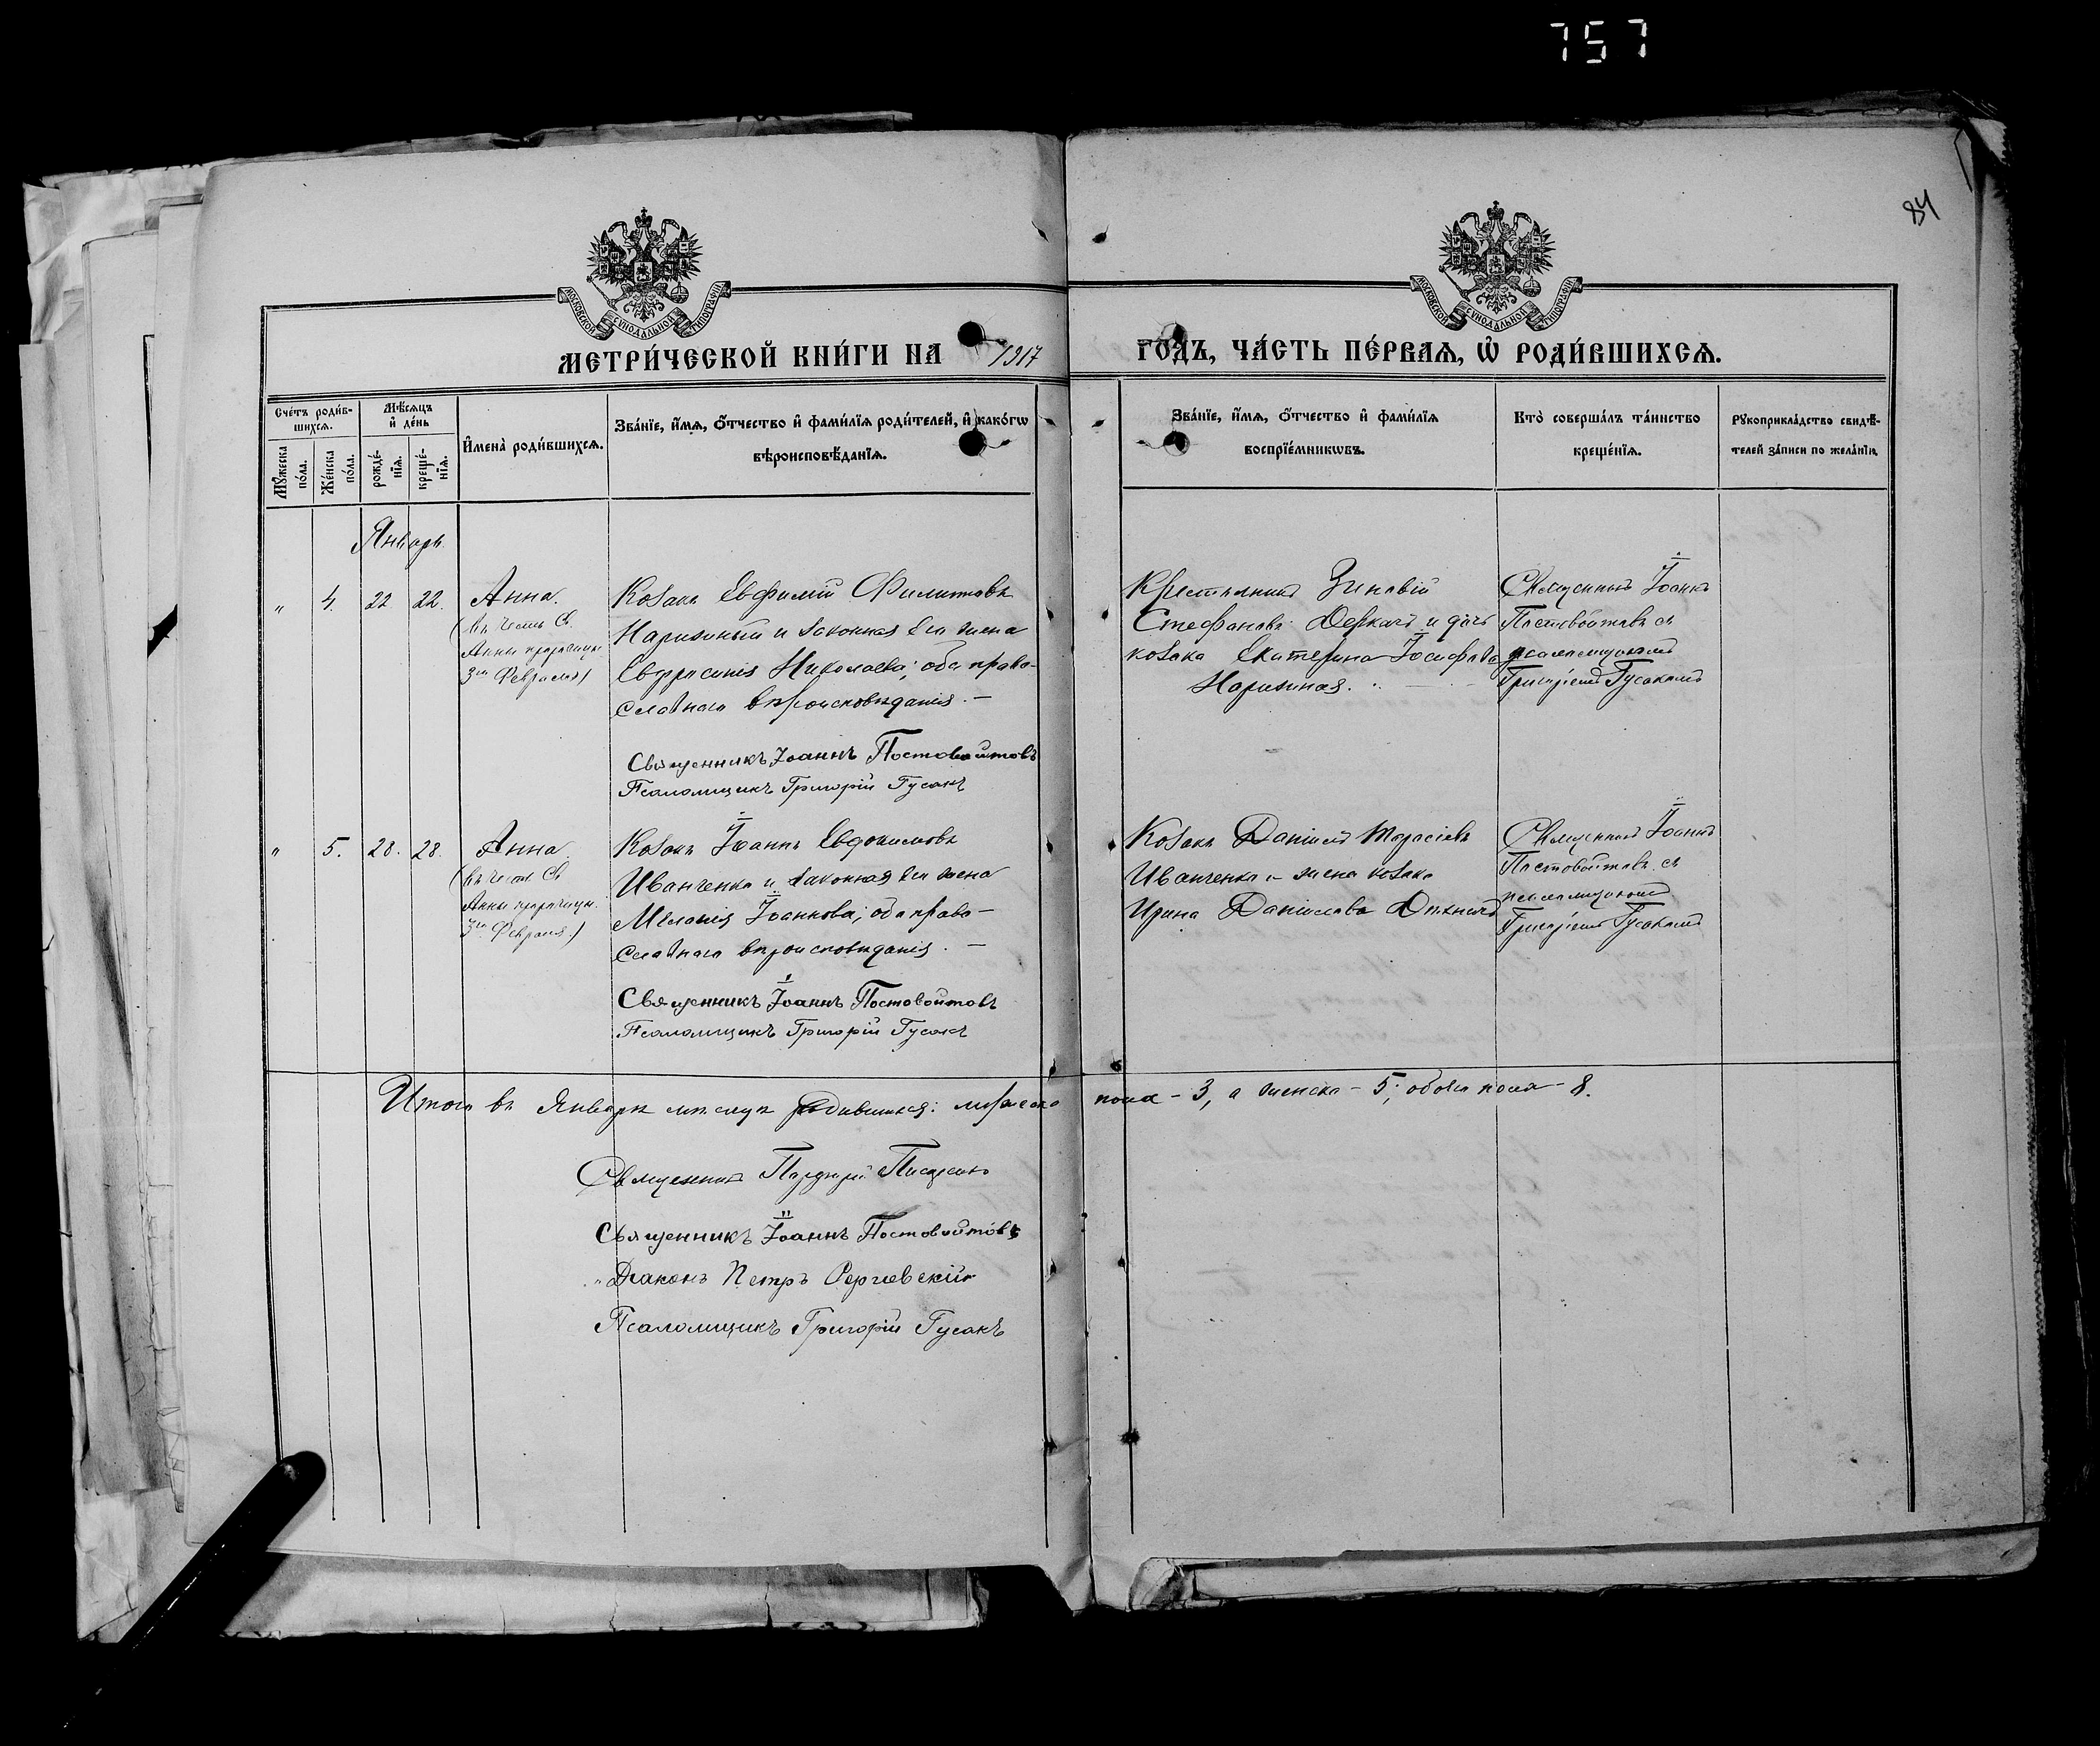 757
84
МОСКОВСКОЙ СУНОДАЛЬНОЙ ТИПОГРАФІИ
МОСКОВСКОЙ СУНОДАЛЬНОЙ ТИПОГРАФІИ
МЕТРИ́ЧЕСКОЙ КНИ́ГИ НА 1917 ГОДЪ, ЧА́СТЬ ПЕ́РВАѦ, Ѡ҆ РОДИ́ВШИХСѦ.
Сче́тъ роди́в-
шихсѧ.
Мꙋжеска по́ла.
Же́нска по́ла.
Мѣ́сѧцъ и҆ де́нь
рожде́-нїѧ.
креще́-нїѧ.
И҆мена̀ роди́вшихсѧ.
Зва́нїе, и҆́мѧ, ѻ҆́тчество и҆ фами́лїѧ роди́телей, и҆ како́гѡ
вѣроисповѣ́данїѧ.
Зва́нїе, и҆́мѧ, ѻ҆́тчество и҆ фами́лїѧ
воспрїе́мникѡвъ.
Кто̀ соверша́лъ та́инство
креще́нїѧ.
Рꙋкоприкла́дство свидѣ́-
телей за́писи по жела́нїю.
Январь
" 4. 22 22. Анна.
(въ честь Св.
Анны пророчицы
3го Февраля)
Козакъ Евфимій Филиповъ
и законная его жена
Евфросинія Николаева; оба право-
славнаго вѣроисповѣданія. —
Священникъ Іоаннъ Постовойтовъ
Псаломщикъ Григорій Гусакъ
Крестьянинъ Зиновій
Стефановъ Деркачъ и дочь
козака Екатерина Іосифова
Священникъ Іоаннъ
Постовойтовъ съ
псаломщикомъ
Григоріемъ Гусакомъ
" 5. 28. 28. Анна
(въ честь Св.
Анны пророчицы.
3го Февраля.)
Козакъ Іоаннъ Евдокимовъ
Иванченко и законная его жена
Меланія Іоаннова; оба право-
славнаго вѣроисповѣданія. —
Священникъ Іоаннъ Постовойтовъ
Псаломщикъ Григорій Гусакъ
Козакъ Даніилъ
Иванченко и жена козака
Ирина Даніилова
Священникъ Іоаннъ
Постовойтовъ съ
псаломщикомъ
Григоріемъ Гусакомъ
Итого въ Январѣ мѣсяцѣ родившихся: мужеска пола - 3, а женска - 5; обоего пола - 8.
Священникъ
Священникъ Іоаннъ Постовойтовъ
Діаконъ Петръ
Псаломщикъ Григорій Гусакъ